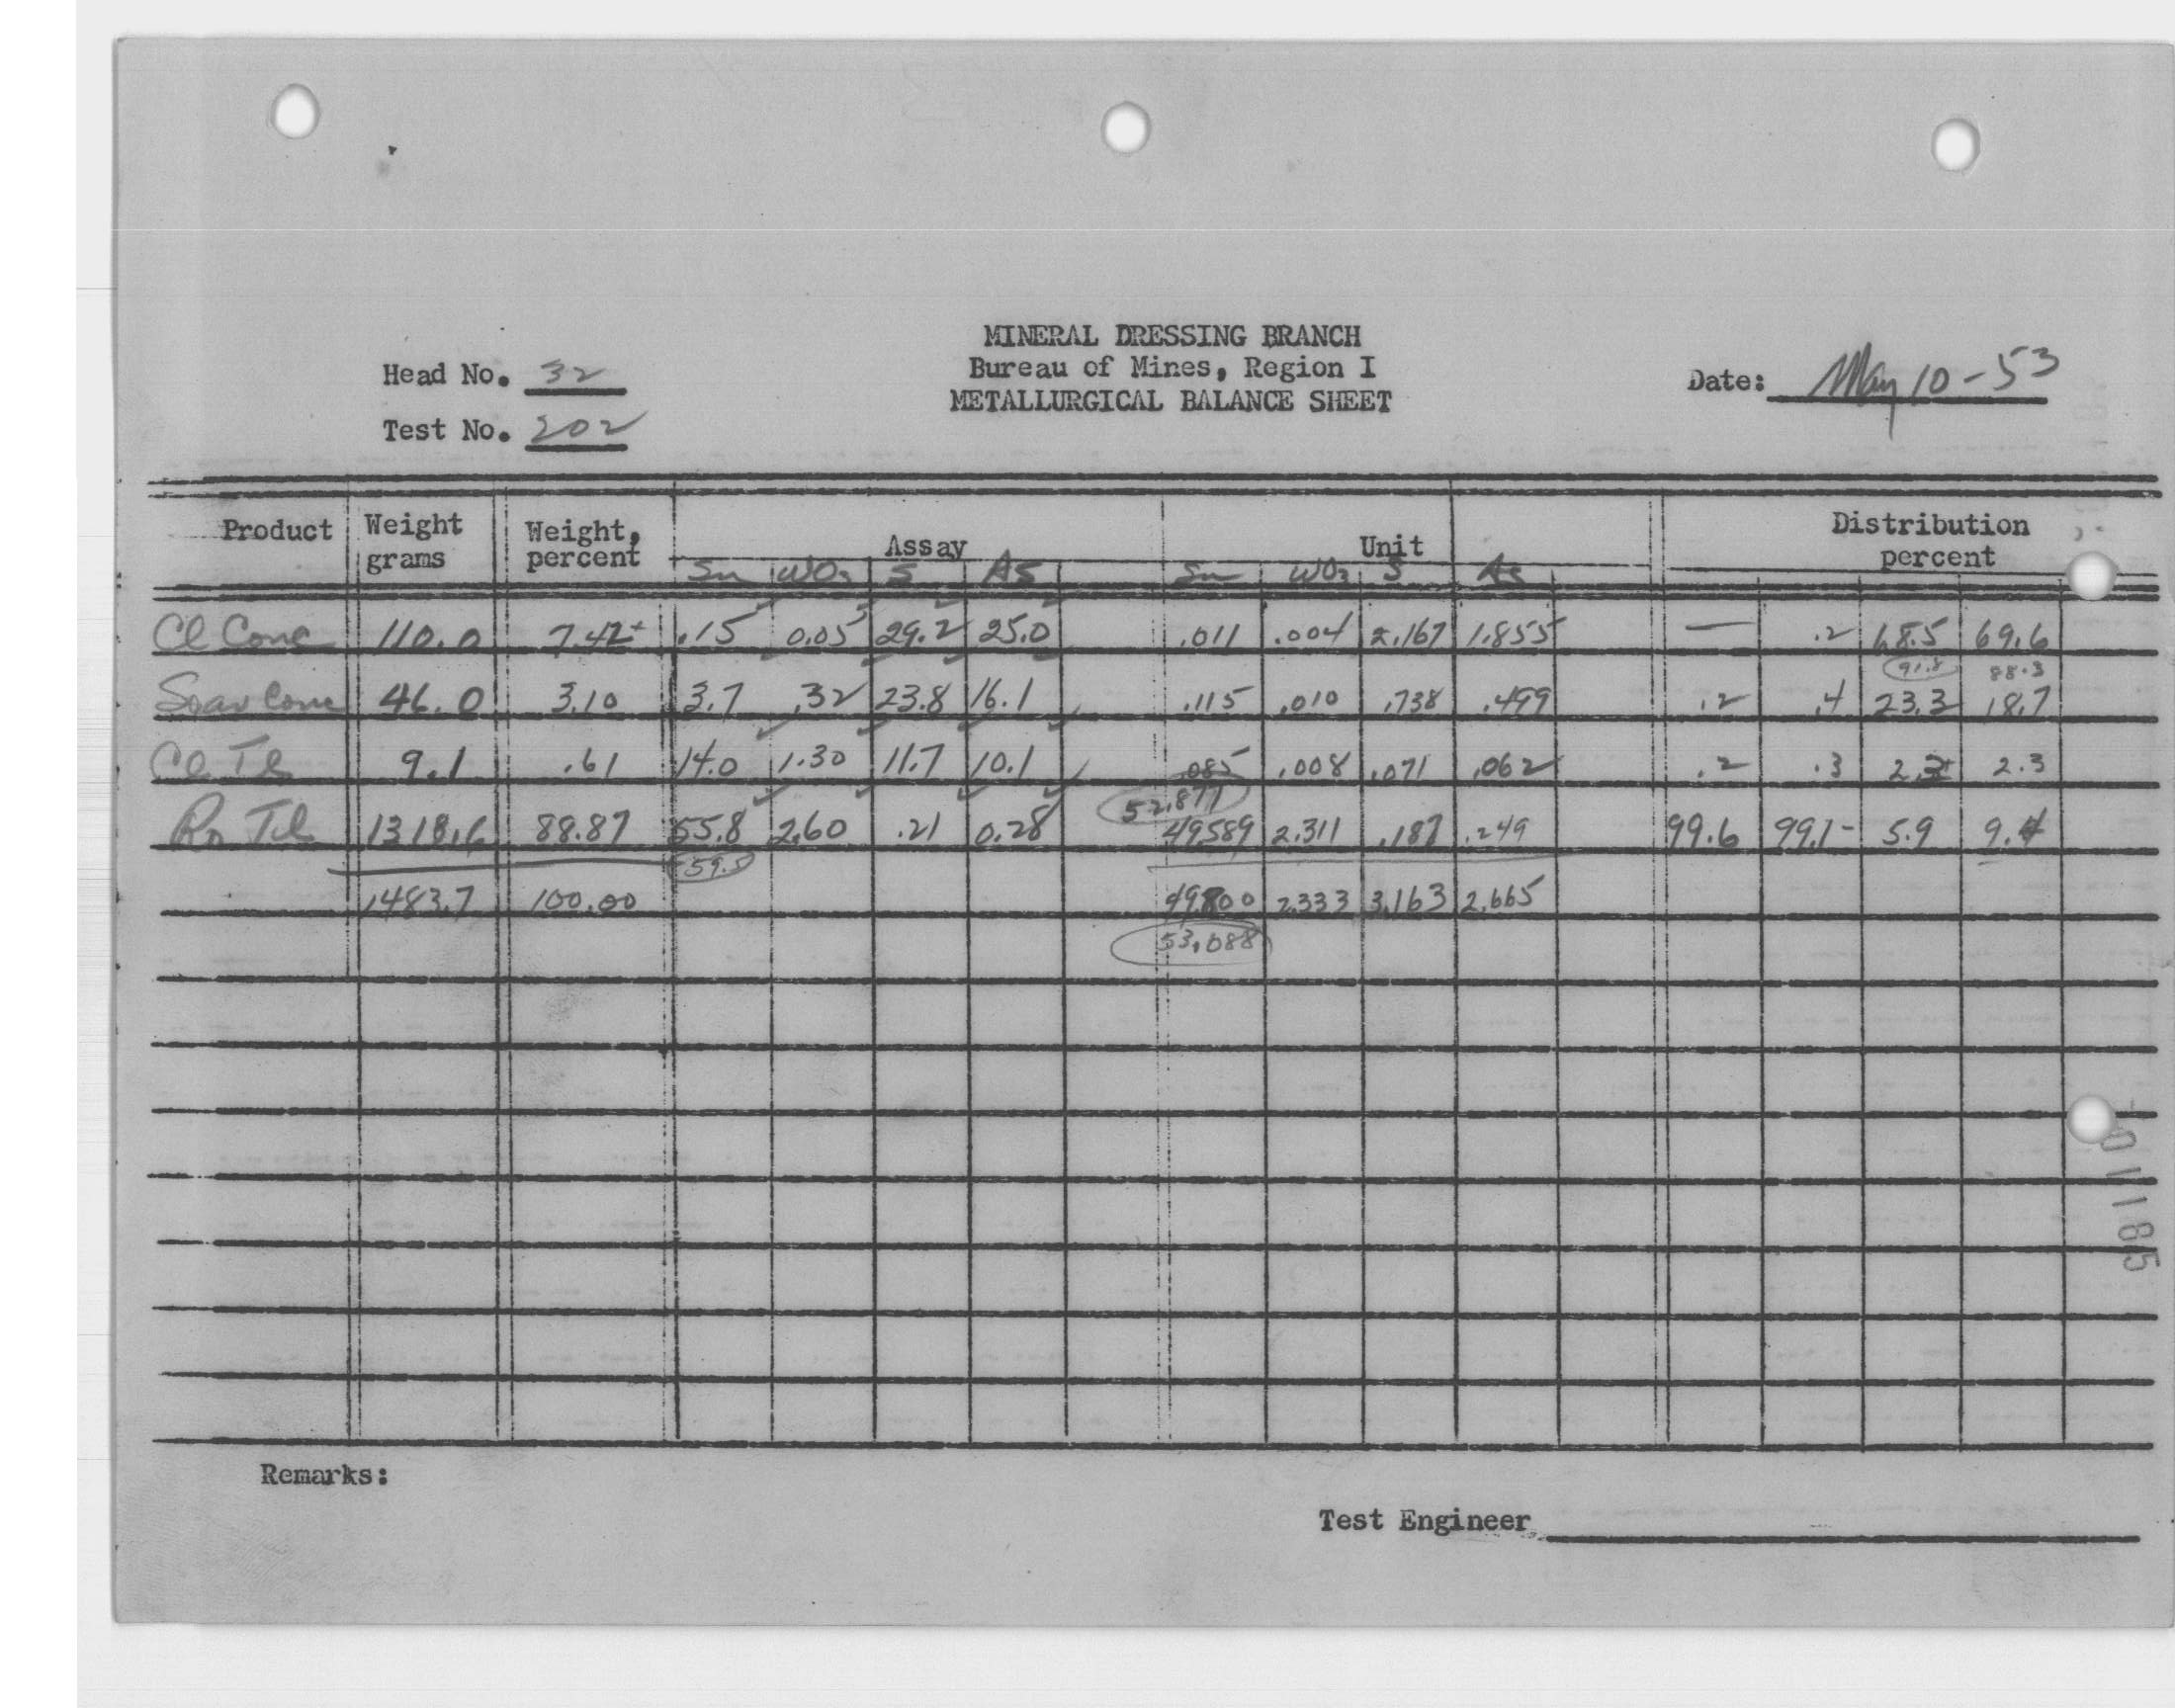 MINERAL DRESSING BRANCH
Head No. 32 Bureau of Mines, Region I Date: May 10-53
METALLURGICAL BALANCE SHEET
Test No. 202
Product Weight grams Weight, percent Assay Unit Distribution percent
Sn WO3 S As Sn WO3 S As
Cl Conc 110.0 7.42+ .15 0.05 29.2 25.0 .011 .004 2.167 1.855 — .2 68.5 69.6
91.8 88.3
Scav Conc 46.0 3.10 3.7 .32 23.8 16.1 .115 .010 .738 .499 .2 .4 23.3 18.7
Cl Tl 9.1 .61 14.0 1.30 11.7 10.1 .085 .008 .071 .062 .2 .3 2.3 2.3
52.877
Ro Tl 1318.6 88.87 55.8 2.60 .21 0.28 49.589 2.311 .187 .249 99.6 99.1- 5.9 9.4
59.5
1483.7 100.00 49.800 2.333 3.163 2.665
53.088
01185
Remarks:
Test Engineer